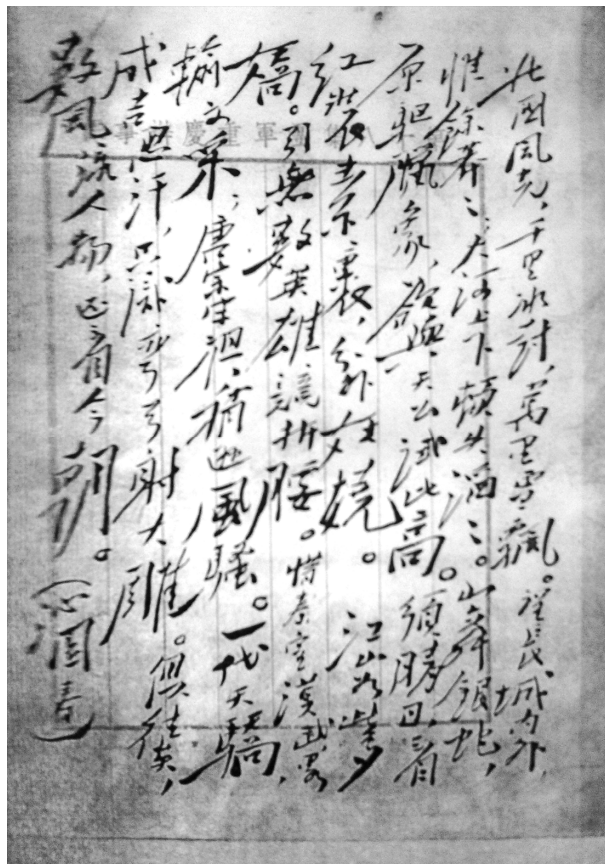 北國風光，千里冰封，萬里雪飄。望長城內外，
惟餘莽々；大河上下，頓失滔々。山舞銀蛇，
原驅臘象，欲與天公試比高。須晴日，看
紅裝素裹，分外妖嬈。 江山如此多
嬌。引無數英雄競折腰。惜秦皇漢武，略
輸文采；唐宗宋祖，稍遜風騷。一代天驕，
成吉思汗，只識彎弓射大雕。俱往矣，
數風流人物，還看今朝。（沁園春）
團軍重慶辦事